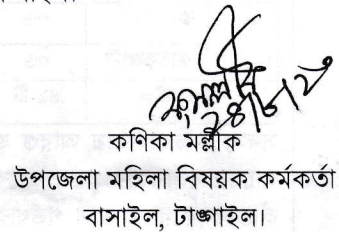 কনিকা মল্লীক
উপজেলা মহিলা বিষয়ক কর্মকর্তা
বাসাইল, টাঙ্গাইল।